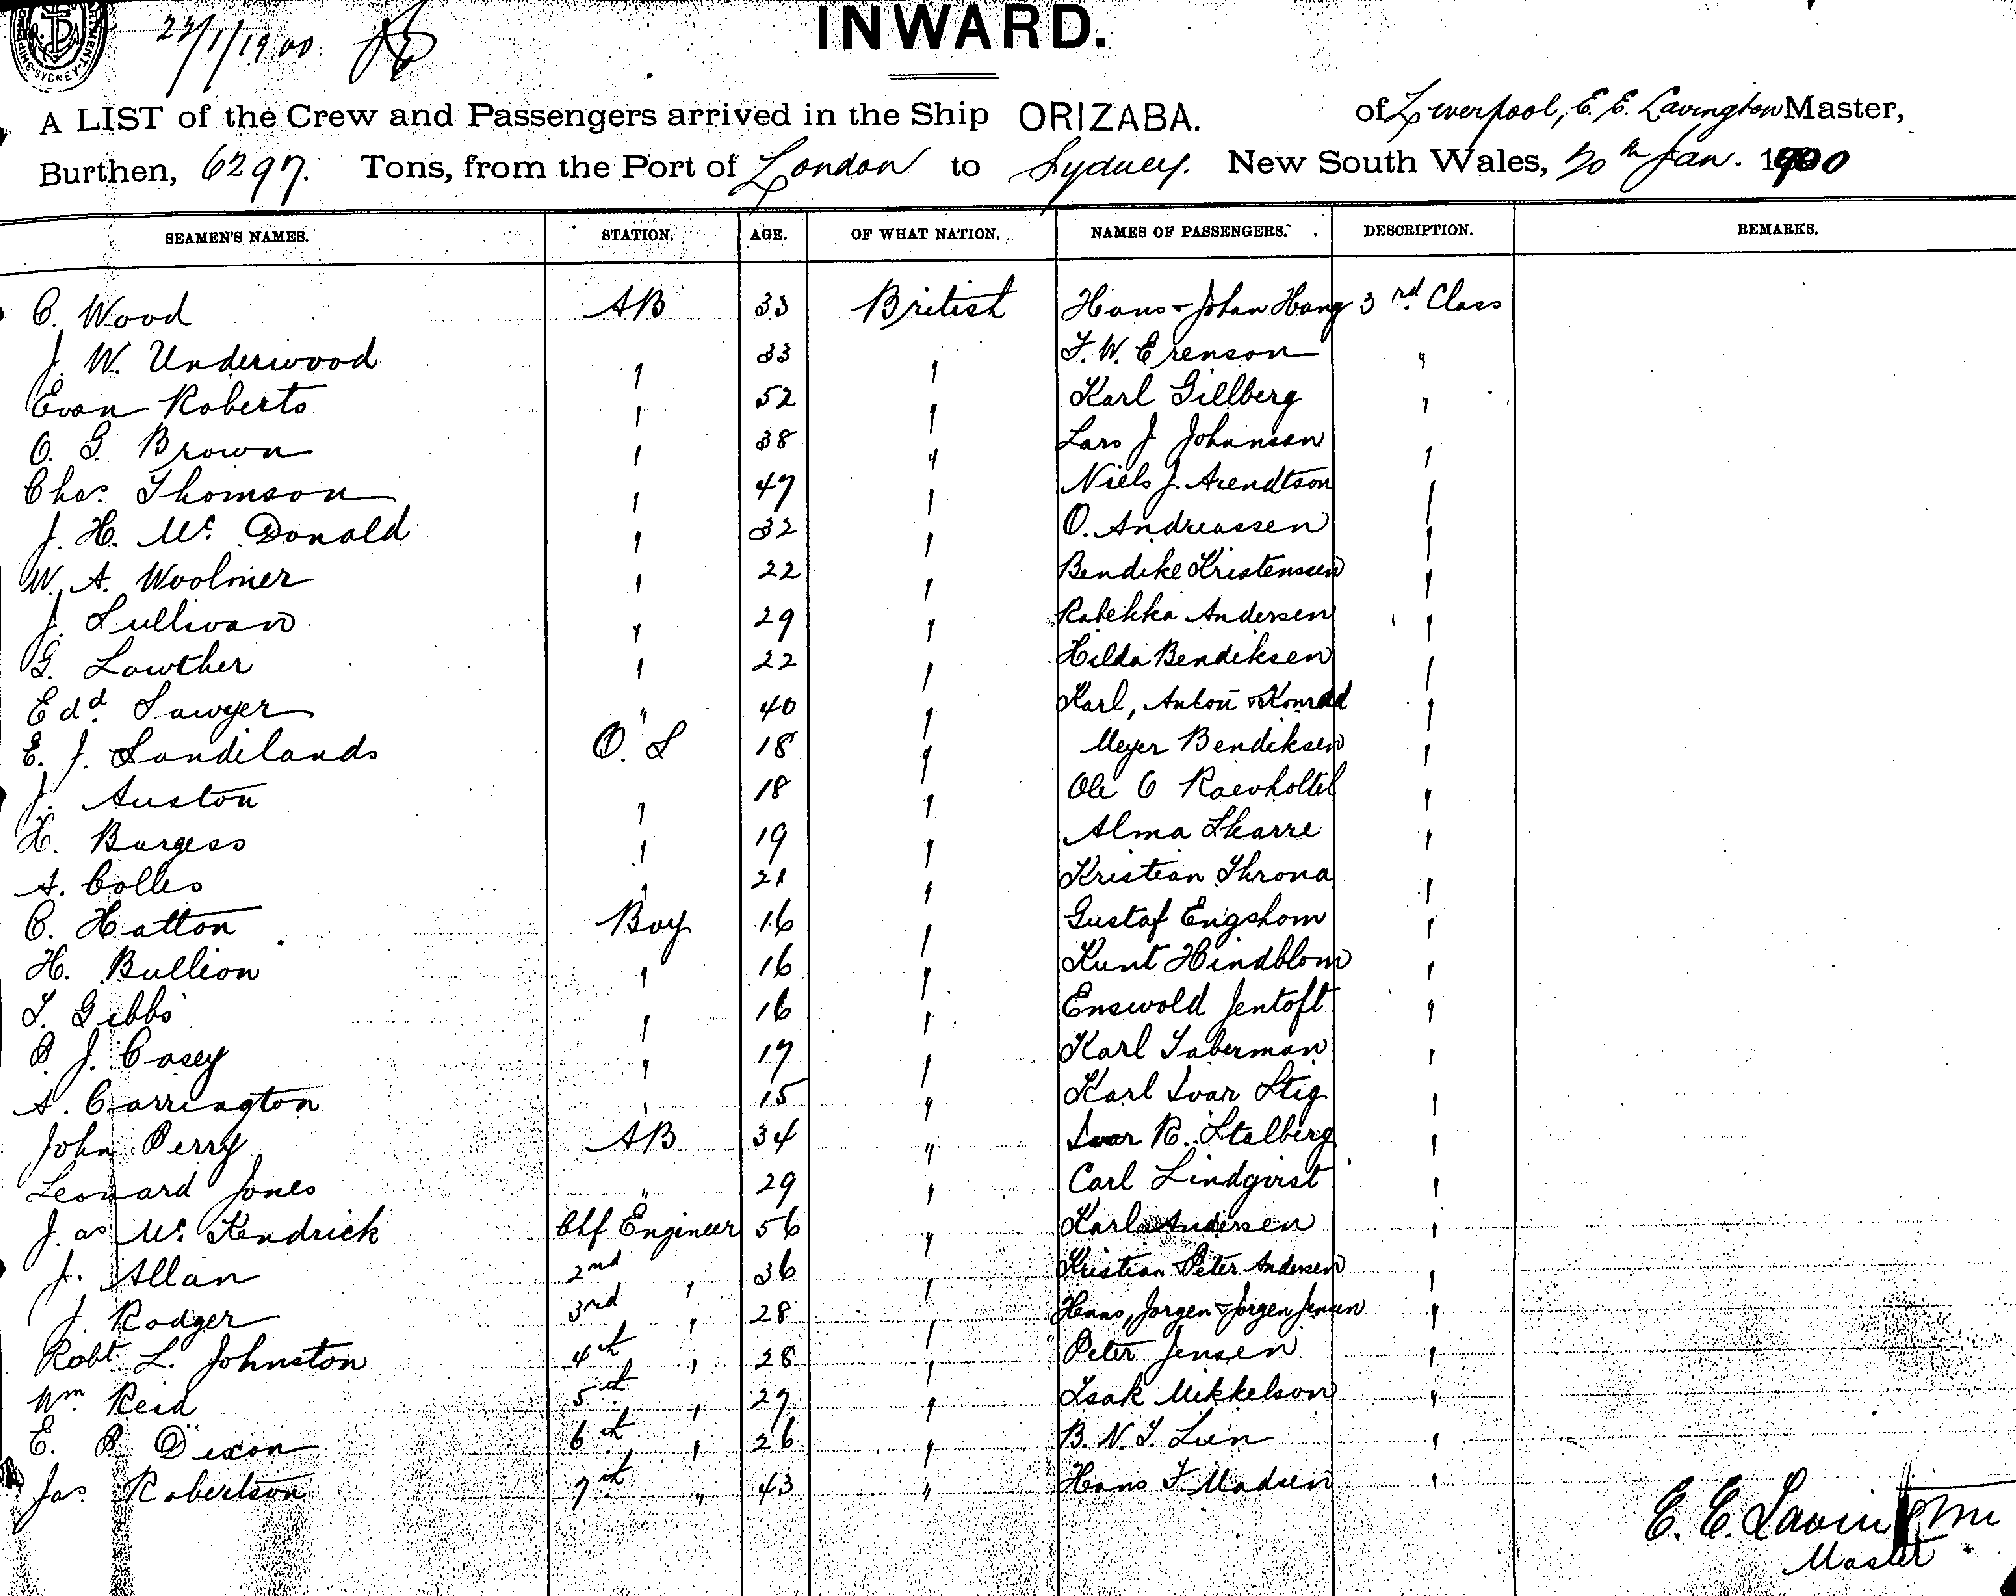 22/1/1900
INWARD.
A LIST of the Crew and Passengers arrived in the Ship ORIZABA. of Liverpool, E. E. Lavington Master,
Burthen, 6297. Tons, from the Port of London to Sydney. New South Wales, 20th Jan. 1900
SEAMEN'S NAMES. STATION. AGE. OF WHAT NATION. NAMES OF PASSENGERS. DESCRIPTION. REMARKS.
C. Wood AB 33 British Hans & Johan Haug 3rd Class
J. W. Underwood " 33 " T. W. Erenson "
Evan Roberts " 52 " Karl Gillberg "
O. G. Brown " 38 " Lars J Johansen "
Chas. Thomson " 47 " Niels J. Arendtson "
J. H. Mc Donald " 32 " O. Andreassen "
W. A. Woolmer " 22 " Bendike Kristensen "
J. Sullivan " 29 " Rabekka Andersen "
G. Lowther " 22 " Hilda Bendiksen "
Edd. Sawyer " 40 " Karl, Anton & Konrad "
E. J. Sandilands O. S 18 " Meyer Bendiksen "
J. Auston " 18 " Ole O "
H. Burgess " 19 " Alma Skarre "
A. Colles " 21 " Kristian Throna "
C. Hatton Boy 16 " Gustaf Engshom "
H. Bullion " 16 " Kunt Hindblom "
T. Gibbs " 16 " Enswold Jentoft "
P. J. Casey " 17 " Karl Saberman "
A. Carrington " 15 " Karl Ivar Stig "
John Perry AB 34 " Ivar R. Stalberg "
Leonard Jones " 29 " Carl Lindqvist "
Jas Mc Kendrick Chf Engineer 56 " Karl Andersen "
J. Allan 2nd " 36 " Kristian Peter Andersen "
J. Rodger 3rd " 28 " Hans, Jorgen & Jorgen Jensen "
Robt L. Johnston 4th " 28 " Peter Jensen "
Wm. Reid 5th " 27 " Isak Mikkelson "
E. P. Dixon 6th " 26 " B. N. T. Lien "
Jas. Robertson 7th " 43 " Hans T. Madsen "
E. E. Lavington
Master